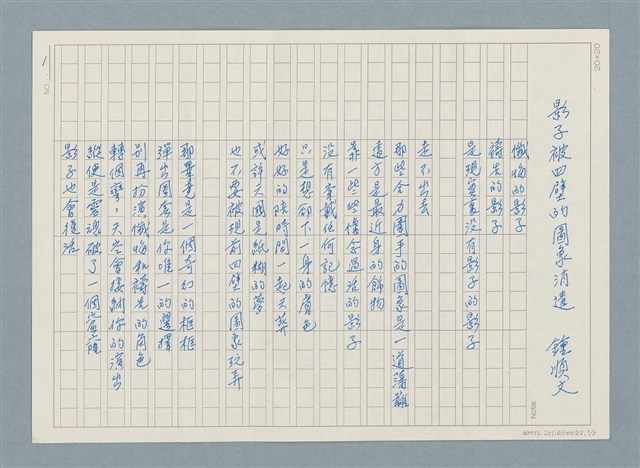 影子被四壁的圖象消遣 鍾順文
懺悔的影子
禱告的影子
是現實裏沒有影子的影子
走不出去
那些全力圍手的圖象是一道藩籬
遠方是最近身的飾物
靠一些些懷念過活的影子
沒有穿戴任何記憶
只是想卸下一身的膚色
好好的陪時間一起天葬
或許天國是紙糊的夢
也不要被現前四壁的圖象玩弄
那畢竟是一個奇幻的框框
彈出圈套是你唯一的選擇
別再扮演懺悔和禱告的角色
轉個彎,天空會接納你的演出
縱使是靈魂破了一個窟窿
影子也會復活
20×20
NO. 1
Note.